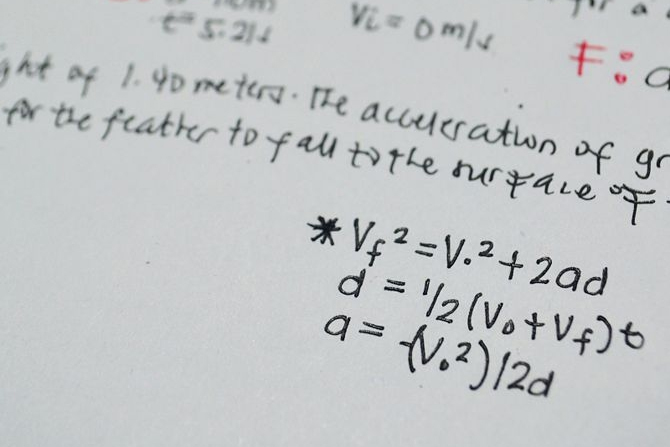 for a
t = 5.21s
Vi = 0 m/s
F:
ght of 1.40 meters. The acceleration of gr
for the feather to fall to the surface of
* Vf² = V₀² + 2ad
d = 1/2 (V₀ + Vf) t
a = -(V₀²)/2d